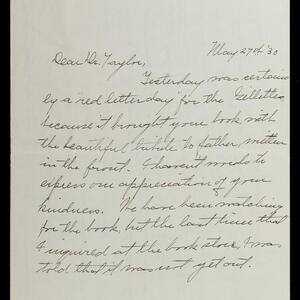 May 27th '30
Dear Dr. Taylor,
Yesterday was certain-
ly a "red letter day" for the Gillettes,
because it brought your book, with
the beautiful tribute to father, written
in the front. I haven't words to
express our appreciation of your
kindness. We have been watching
for the book, but the last time that
I inquired at the book store, I was
told that it was not yet out.